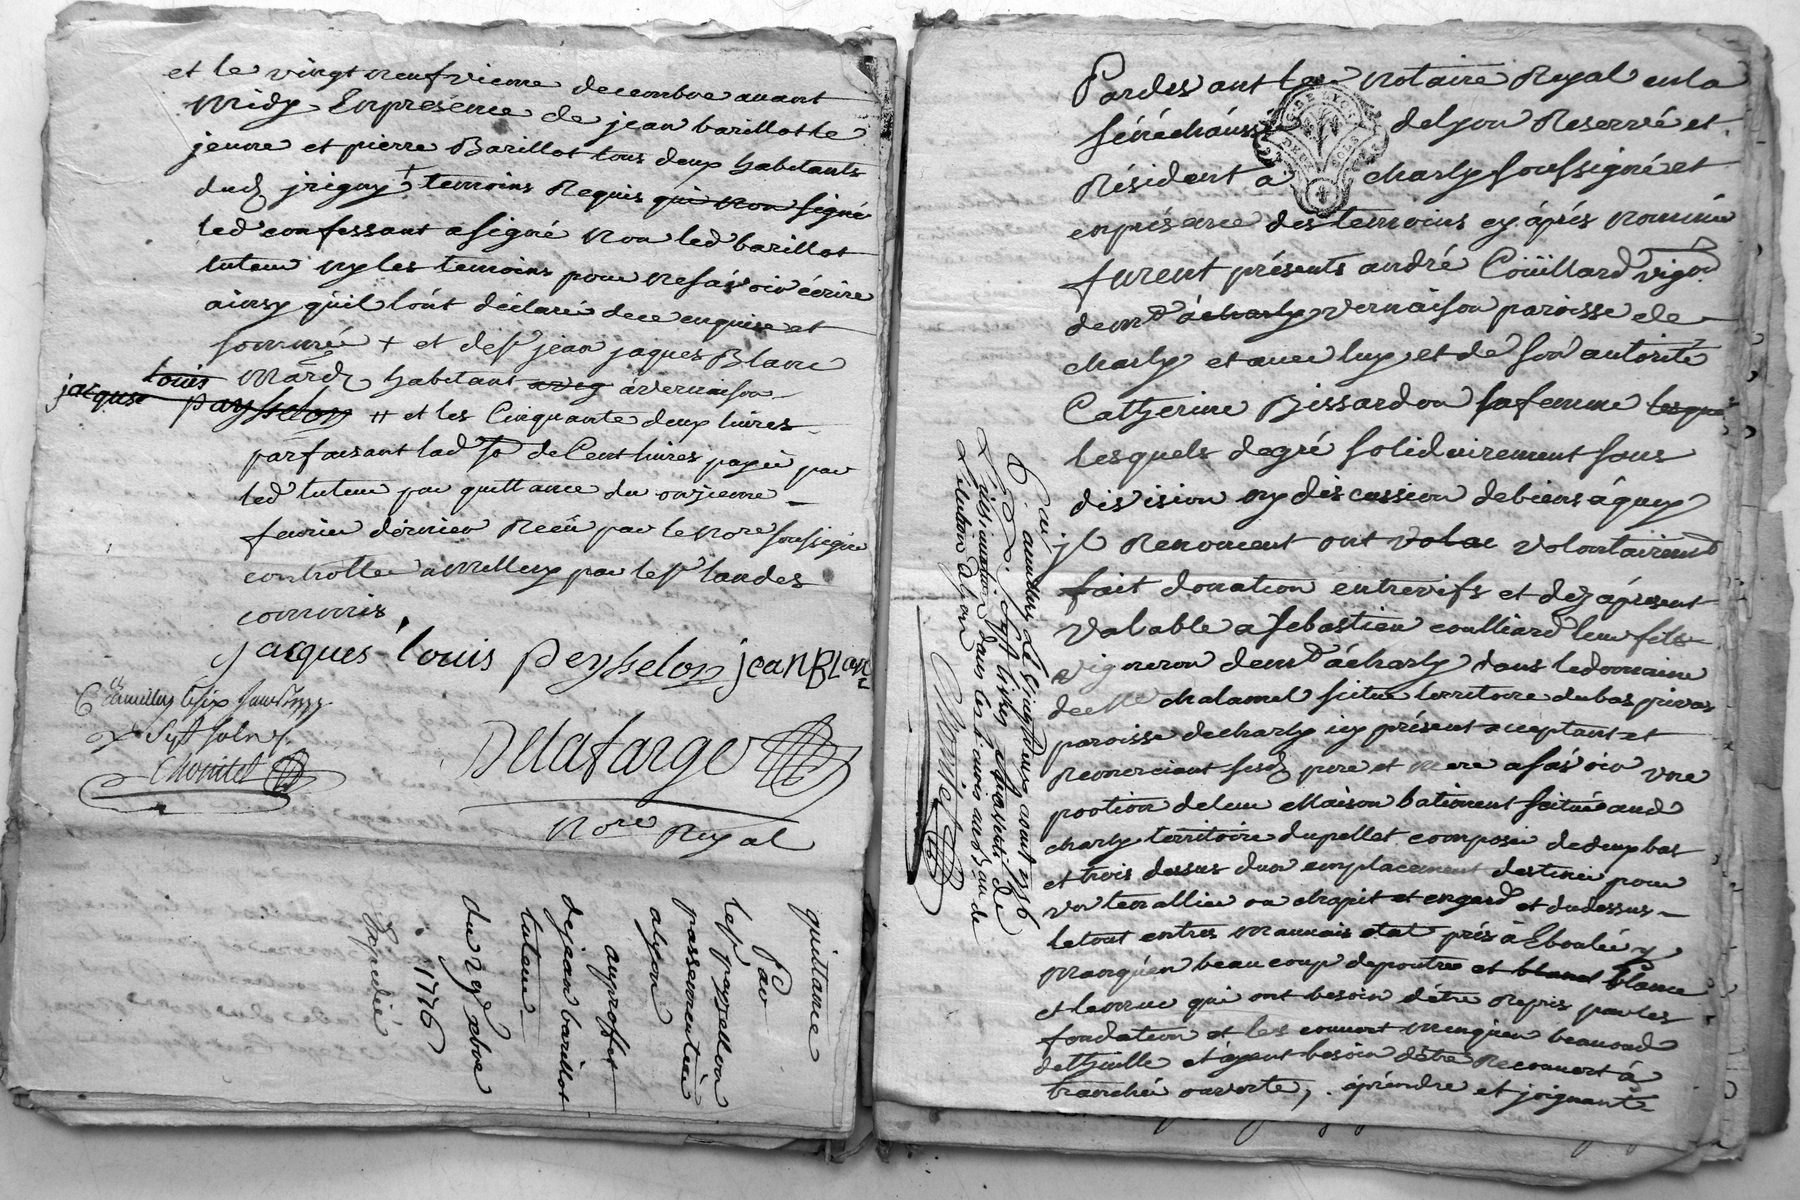 et le vingt neufvieme decembre avant
Midy Enpresence de jean barillot le
jeune et pierre Barillot tous deux habitants
dud jrigny + temoins Requis qui non signé
led confessant a signé Non led barillot
tuteur ny les temoins pour ne sávoir écrire
ainsy quil lont déclaré de ce enquis et
sommé + et de sr jean jaques Blanc
louis Mard habitant a vernaison
jacques paysselon # et les Cinquante deux livres
parfaisant lad so de Cent livres payée par
led tuteur par quittance du onzieme
fevrier dernier Reçu par le Nore soussigné
controllé a Millery par le sr landes
commis,
jacques louis peysselon jean BLanc
Cé a millery le six janv 1777
sols
Chomitel
Delafarge
Nore Royal
quittance
Par
le sr paysselon
passementier
alyon
auproffit
de jean barillot
tuteur
du 29 xbre
1776
Expedié
Pardevant le Notaire Royal en la
sénéchaussée de lyon Reservé et
Résident a charly soussigné et
enprésence des temoins cy áprés nommés
furent présents andré Coüillard vigon
demt á charly vernaison paroisse de
charly et avec luy et de son autorité
Catherine Bissardon sa femme lesque
lesquels de gré solidairement sans
division ny discussion de biens á quoy
jl Renoncent ont volac volontairemt
fait donation entrevifs et dez áprésent
valable a sebastien coulliard leur fils
vigneron demt á charly dans le domaine
de Mr chalamel scitué territoire du bas privas
paroisse de charly icy présent acceptant et
remerciant sesd pere et mere a sávoir une
portion de leur Maison batiment scituée aud
charly territoire du pellet composée de deux bas
et trois dessus d'un emplacement destiné pour
un tenallier ou chapit et engard et dudessus
le tout en tres mauvais etat prés á Eboulér y
manquen beaucoup de poutres et bland blance
et le mur qui ont besoin détre repris par les
fondation et les couvert menquen beaucoud
de thuille et áyent besoin détre Recouvert á
tranchée ouverte, . áprendre et joignant
C. a millery le cinq mars avant 1776
Reçu sept livres
L'insinuation dans les 4 mois au bau de
L'election de lyon
Chomitel